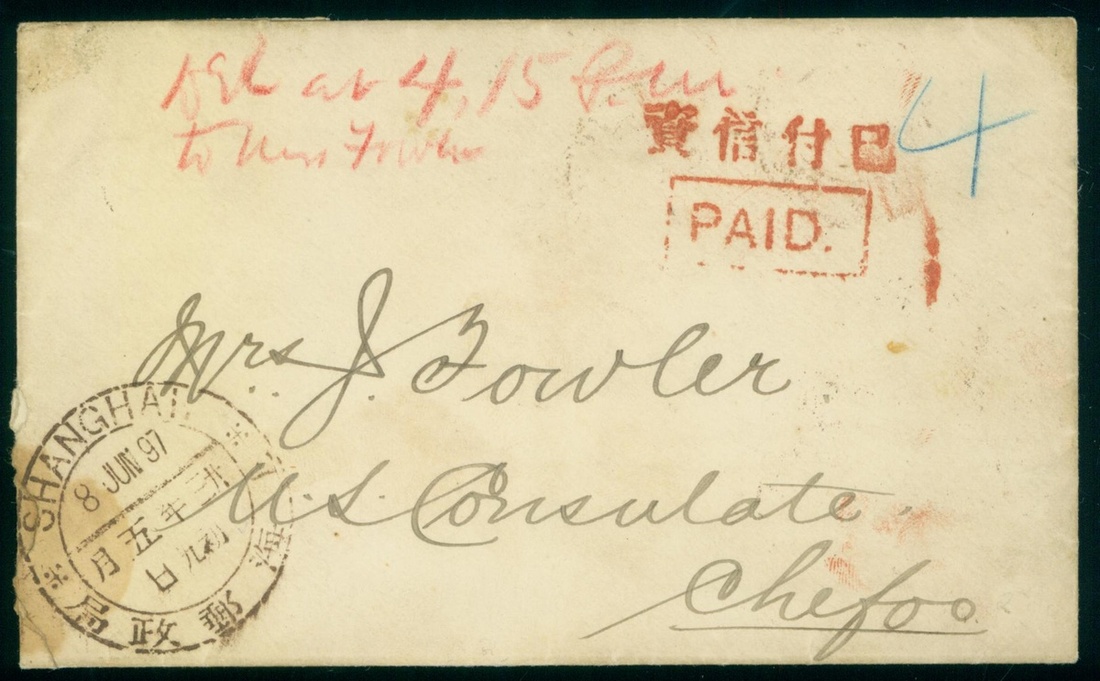 Del at 4,15 P.m
to Mrs Fowler
已付信資
4
PAID.
Mrs. J. Fowler
U.S. Consulate.
Chefoo
SHANGHAI
8 JUN 97
廿三年五月
初九日
海郵政局